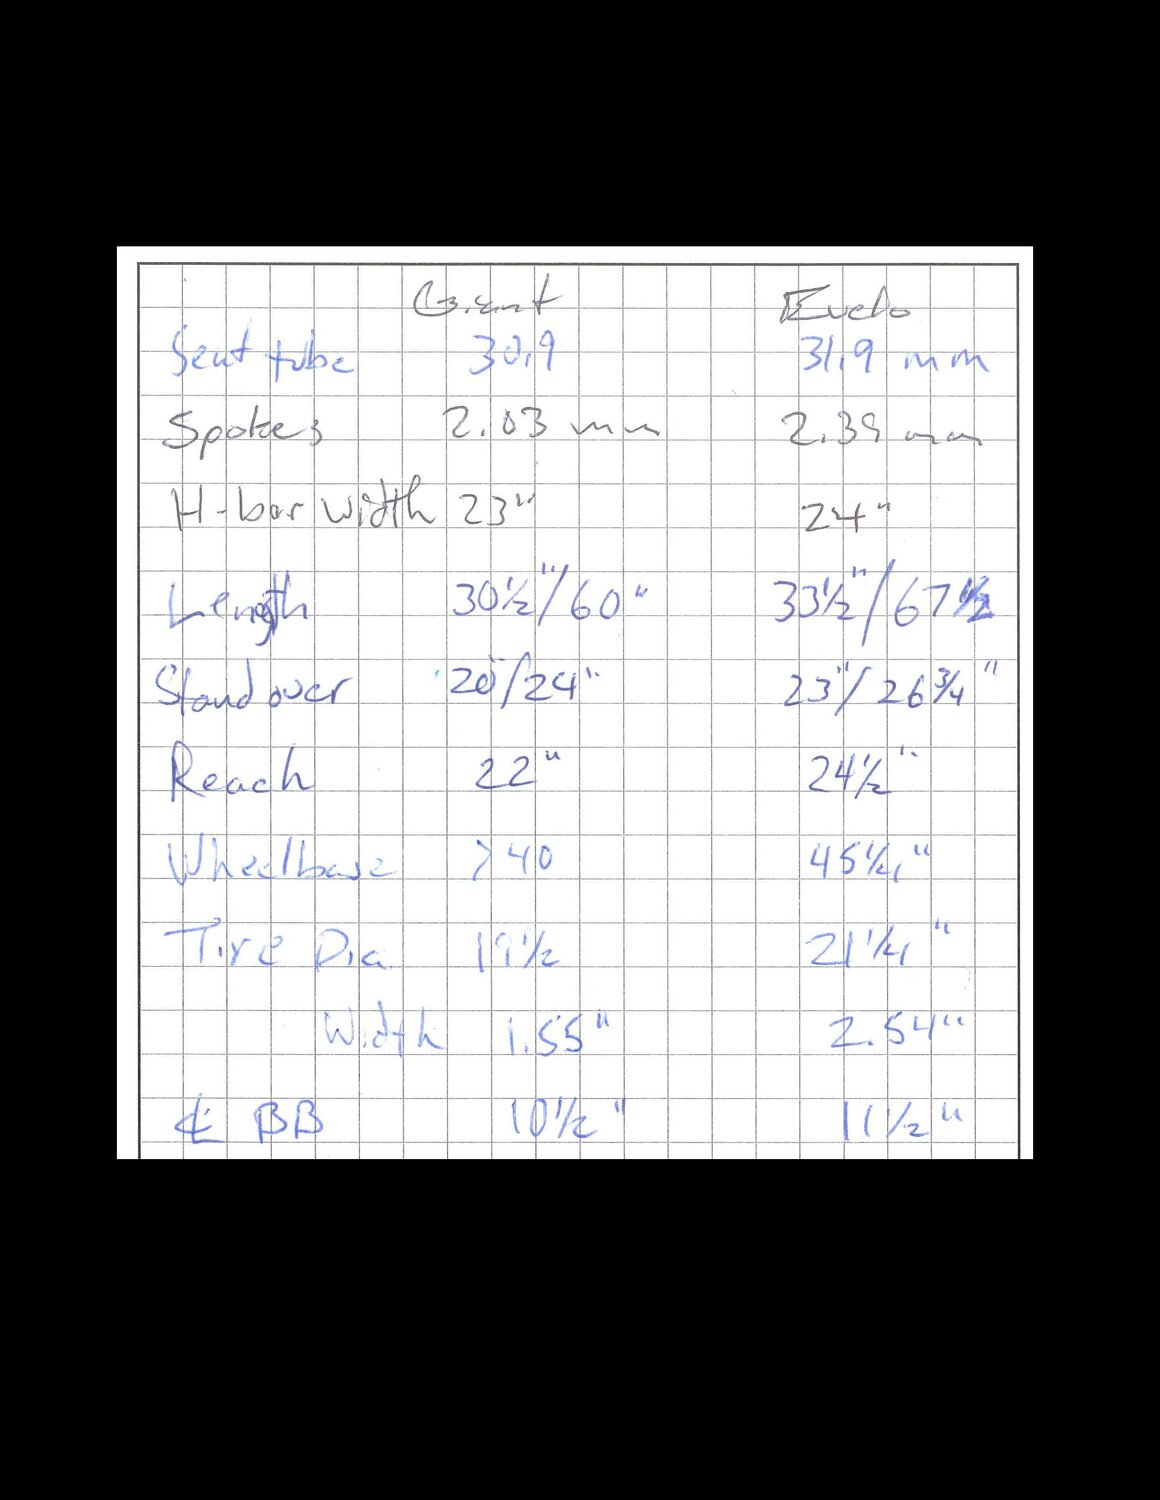 Giant Evelo
Seat tube 30.9 31.9 mm
Spokes 2.03 mm 2.39 mm
H-bar width 23" 24"
Length 30½"/60" 33½"/67½
Stand over 20"/24" 23"/26¾"
Reach 22" 24½"
Wheelbase >40 45¼"
Tire Dia 19½ 21¼"
Width 1.55" 2.54"
℄ BB 10½" 11½"